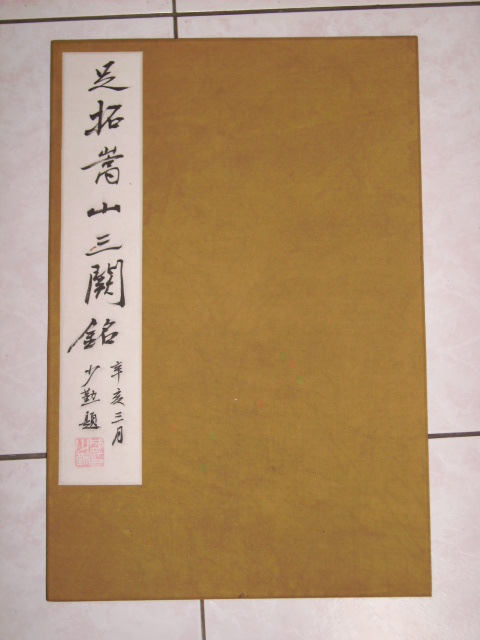 足拓嵩山三闕銘
辛亥三月
少勤題